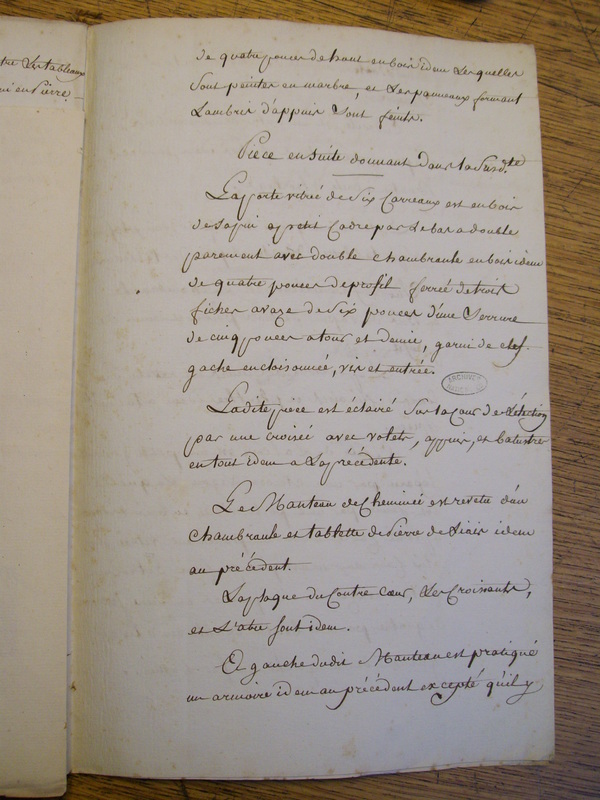 tre Les tableaux
en Pierre.
de quatre pouces de haut en bois idem Lesquelles
Sont peintes en marbre, et Les panneaux formant
Lambris d'appuis Sont feints.
Piece en suite donnant dans la Susd.te
La porte vitrée de Six Carreaux est en bois
de Sapin a petit Cadre par le bas a double
parement avec double chambranle en bois idem
de quatre pouces de profil ferrée de trois
fiches a vaze de Six pouces d'une Serrure
de cinq pouces a tour et demie, garni de clef
gache encloisonnée, vis et entrée.
ARCHIVES
La dite piece est éclairé Sur la Cour de L'élection
par une croisée avec volets, appuis, et balustres
en tout idem a La précédente.
Le Manteau de Cheminée est revetu d'un
Chambranle et tablette de Pierre de Liais idem
au précédent.
La plaque du Contre Cœur, Les Croissants,
et L'atre Sont idem.
A gauche dudit Manteau est pratiqué
un armoire idem au précédent excepté qu'il y